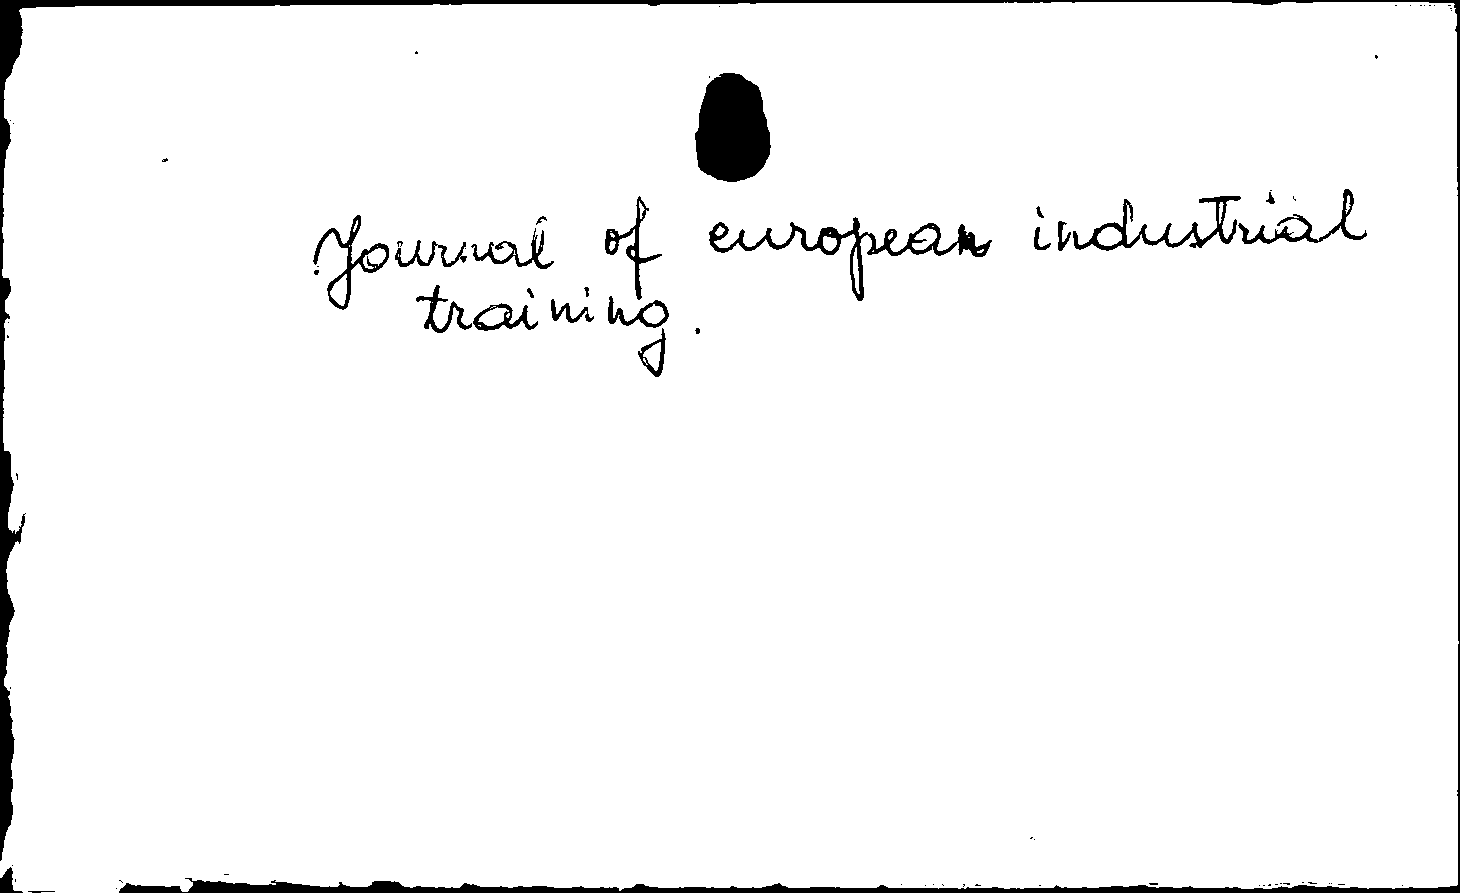 Journal of european industrial
training.